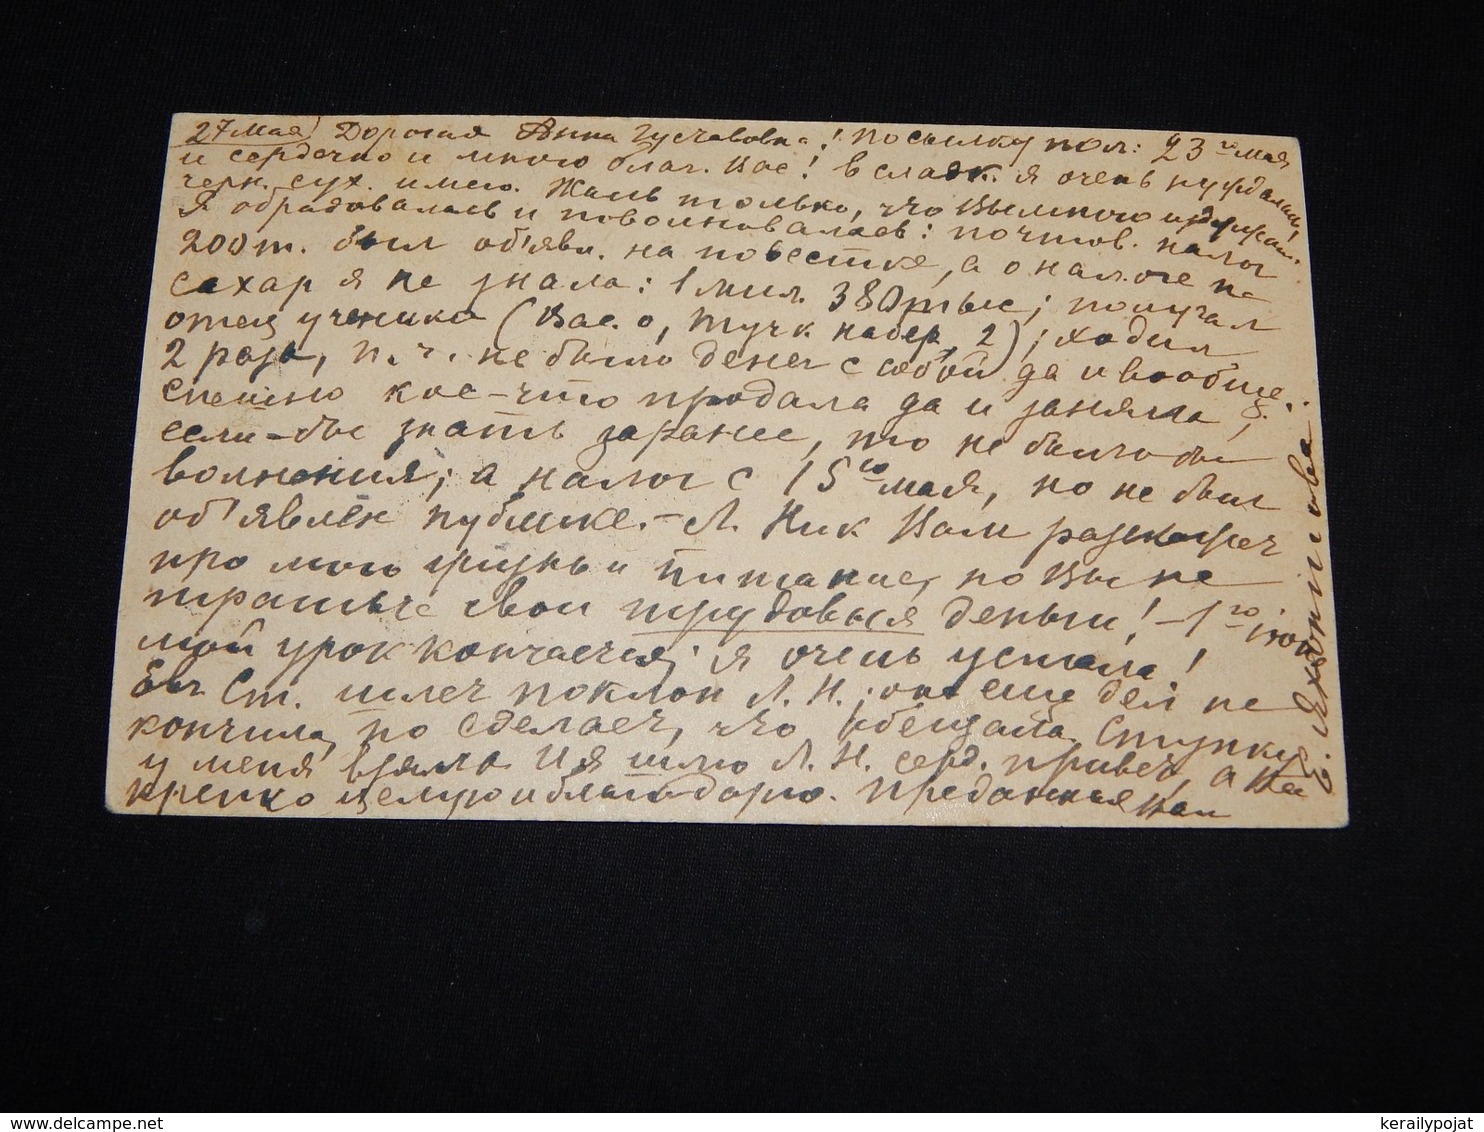 27 мая) Дорогая Анна Густавовна! Посылку пол: 23го мая
и сердечно и много благ. Вас! в сладк. я очень нуждалась,
черн. сух. имею. Жаль только, что Вы много издержали.
Я обрадовалась и поволновалась: почтов. налог
200 т. был об'явл. на повестке, а о налоге на
сахар я не знала: 1 мил. 380 тыс; получал
отец ученика (Вас. о, Тучк набер, 2); ходил
2 раза, п. ч. не было денег с собой да и вообще.
спешно кое-что продала да и заняла;
если-бы знать заранее, то не было бы
волнения; а налог с 15го мая, но не был
об'явлен публике. – Л. Ник Вам расскажет
про мою жизнь и питание, но Вы не
тратьте свои трудовыя деньги! – 1го июня
мой урок кончается; я очень устала!
Евг Ст. шлет поклон Л. Н.; она еще дел не
кончила, но сделает, что обещала. Ступку
у меня взяла. И я шлю Л. Н. серд. привет, а Вас
крепко целую и благодарю. Преданная Вам
Е. Яхонтова